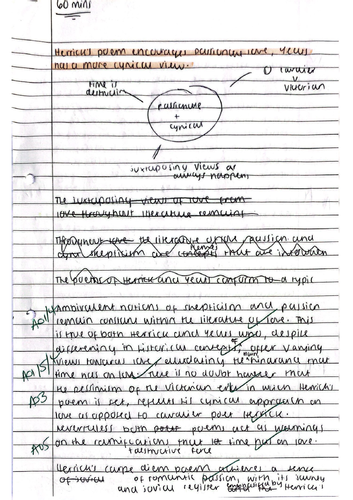 60 mins
Herrick's poem encourages passionate love, Yeats
has a more cynical view.
time is
destructive
① cavalier
v
victorian
passionate
+
cynical
juxtaposing views as
always happens
The juxtaposing views of love from
love throughout literature remains
Throughout love the literature of love passion and
skepticism are concepts that are
The poems of Herrick and Yeats conform to a typic
Ambivalent notions of skepticism and passion
remain constant within the literature of love. This
is true of both Herrick and Yeats who, despite
differening in historical concepts, offer varying
views towards love elucidating the hinderance that
time has on love. Here is no doubt however that
the pessimism of the Victorian era in which Herrick's
poem is set, reflects his cynical approach on
love as opposed to cavalier poet Herrick.
Nevertheless both poems act as warnings
on the ramifications that time has on love.
destructive force
Herrick's carpe diem poem achieves a sense
of social of romantic passion, with its
and jovial register Herrick's
AO1/4
AO1/5/4
AO3
AO5